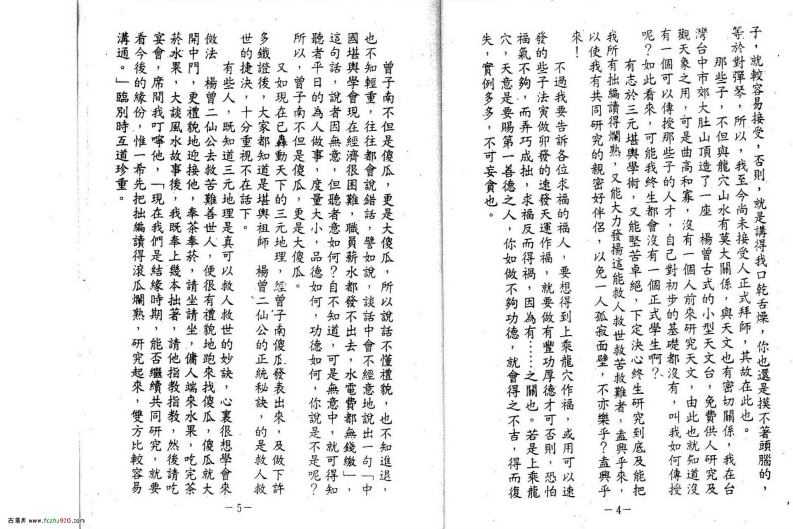 子，就較容易接受，否則，就是講得我口乾舌燥，你也還是摸不著頭腦的，
等於對彈琴，所以，我至今尚未接受人正式拜師，其故在此也。
那些子，不但與龍穴山水有莫大關係，與天文也有密切關係，我在台
灣台中市郊大肚山頂造了一座　楊曾古式的小型天文台，免費供人研究及
觀天象之用，可是曲高和寡，沒有一個人前來研究天文，由此也就知道沒
有一個可以傳授那些子的人才，自己對初步的基礎都沒有，叫我如何傳授
呢？如此看來，可能我終生都會沒有一個正式學生啊？
有志於三元堪輿學術，又能堅苦卓絕，下定決心終生研究到底及能把
我所有拙編讀得爛熟，又能大力發揚這能救人救世救苦救難者，盍興乎來，
以使我有共同研究的親密好伴侶，以免一人孤寂面壁，不亦樂乎？盍興乎
來！
不過我要告訴各位求福的福人，要想得到上乘龍穴作福，或用可以速
發的些子法寅做卯發的速發天運作福，就要做有豐功厚德才可否則，恐怕
福氣不夠，而弄巧成拙，求福反而得禍，因為有……之關也。若是上乘龍
穴，天意是要賜第一善德之人，你如做不夠功德，就會得之不吉，得而復
失，實例多多，不可妄貪也。
—4—
曾子南不但是傻瓜，更是大傻瓜，所以說話不懂禮貌，也不知進退，
也不知輕重，往往都會說錯話，譬如說，談話中會不經意地說出一句「中
國堪輿學會現在經濟很困難，職員薪水都發不出去，水電費都無錢繳」，
這句話，說者因無意，但聽者意如何？自不知道，可是無意中，就可得知
聽者平日的為人做事，度量大小，品德如何，功德如何，你說是不是呢？
所以，曾子南不但是傻瓜，更是大傻瓜。
又如現在已轟動天下的三元地理，經曾子南傻瓜發表出來，及做下許
多鐵證後，大家都知道是堪輿祖師　楊曾二仙公的正統秘訣，的是救人救
世的捷決，十分重視不在話下。
有些人，既知道三元地理是真可以救人救世的妙訣，心裏很想學會來
做法　楊曾二仙公去救苦難善世人，便很有禮貌地跑來找傻瓜，傻瓜就大
開中門，更禮貌地迎接他，奉茶奉菸，請坐請坐，傭人端來水果，吃完茶
菸水果，大談風水故事後，我既奉上幾本拙著，請他指教指教，然後請吃
宴會，席間我叮嚀他，「現在我們是結緣時期，能否繼續共同研究，就要
看今後的緣份，惟一希先把拙編讀得滾瓜爛熟，研究起來，雙方比較容易
溝通。」臨別時互道珍重。
—5—
古易库 www.fczhu920.com